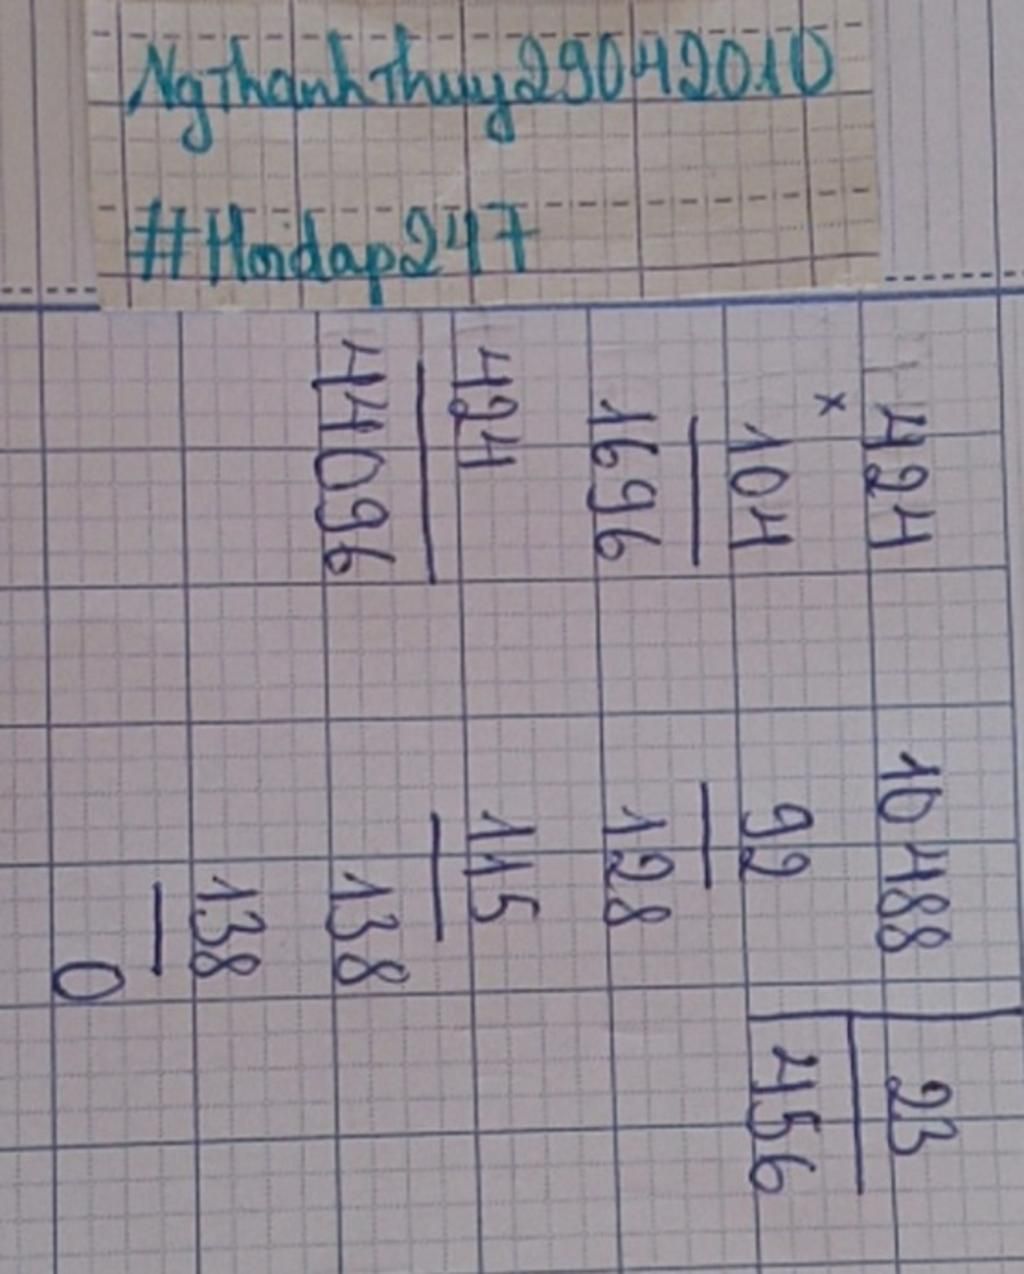 NgThanhThuy29042010
#Hoidap247
424
×
104
1696
424
44096
10488 23
92 456
128
115
138
138
0